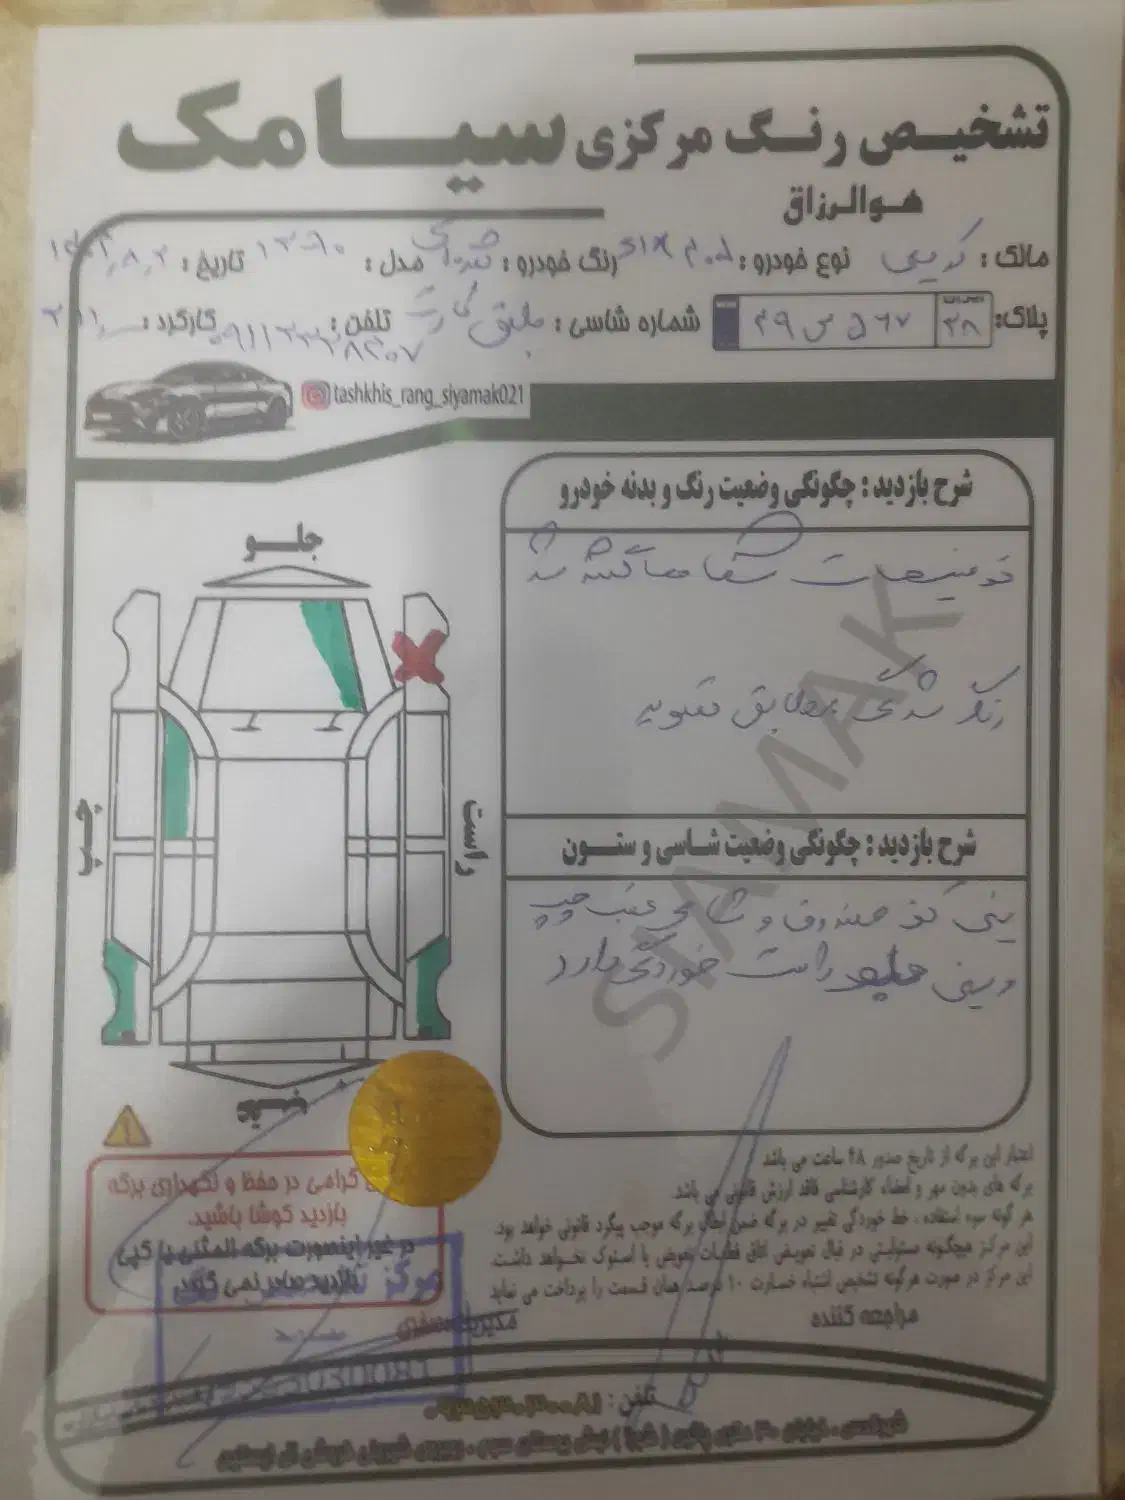 تشخیص رنگ مرکزی سیامک
هوالرزاق
مالک : کریمی نوع خودرو : ۴۰۵ SLX رنگ خودرو : مدل : ۱۳۹۰ تاریخ :
پلاک: ۳۸ ۵۶۷ س ۴۹ شماره شاسی : مطابق کارت تلفن : کارکرد :
tashkhis_rang_siyamak021
شرح بازدید : چگونگی وضعیت رنگ و بدنه خودرو
توضیحات شفاها گفته شد
رنگ شدگی مطابق تصویر
شرح بازدید : چگونگی وضعیت شاسی و ستون
سینی کف صندوق و شاسی عقب چپ
و سینی جلو راست خوردگی دارد
SIAMAK
جلو
چپ
راست
عقب
گرامی در حفظ و نگهداری برگه
بازدید کوشا باشید.
در غیر اینصورت برگه المثنی یا کپی
بازدید صادر نمی گردد.
اعتبار این برگه از تاریخ صدور ۴۸ ساعت می باشد
برگه های بدون مهر و امضاء کارشناسی فاقد ارزش قانونی می باشد.
هر گونه سوء استفاده ، خط خوردگی تغییر در برگه ضمن ابطال برگه موجب پیگرد قانونی خواهد بود.
این مرکز هیچگونه مسئولیتی در قبال تعویض اتاق قطعات تعویض یا استوک نخواهد داشت.
این مرکز در صورت هرگونه تشخیص اشتباه خسارت ۱۰ درصد همان قسمت را پرداخت می نماید
مراجعه کننده
تلفن :